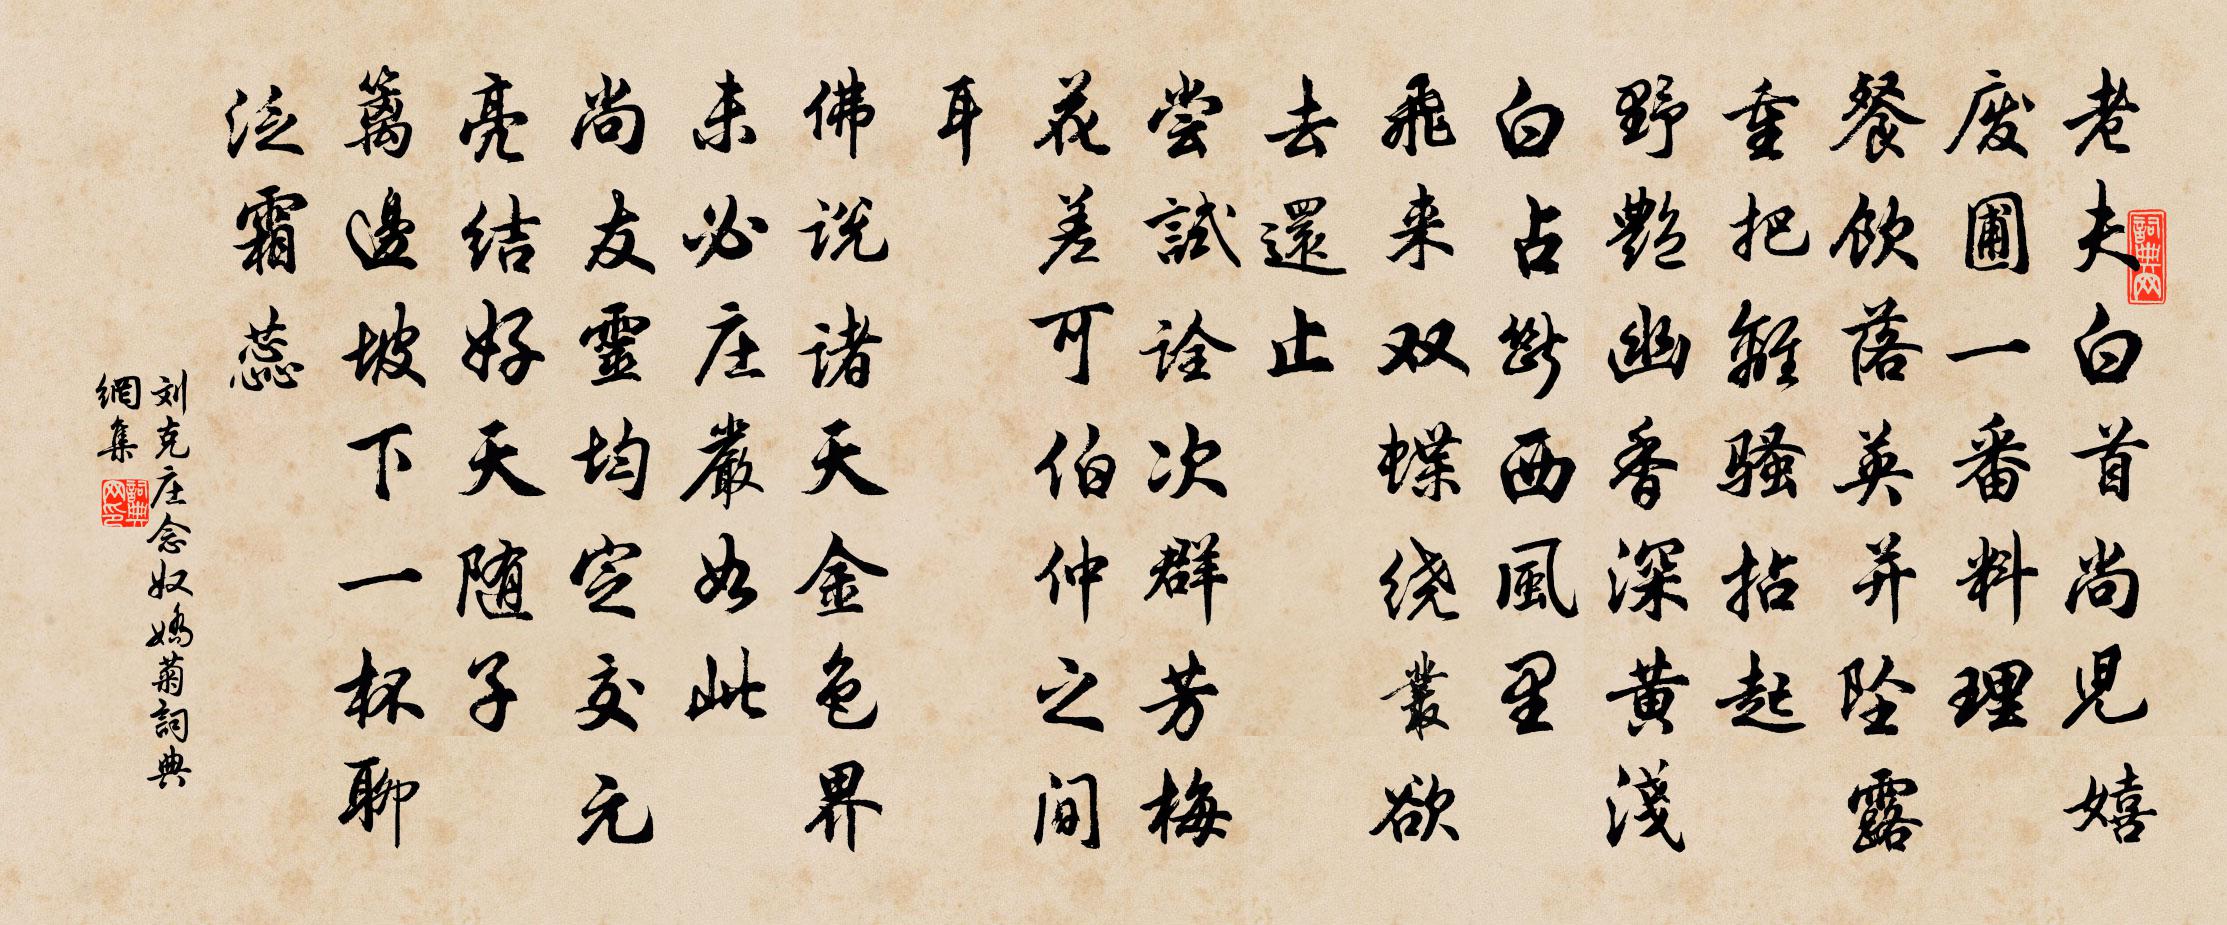 老夫白首尚児嬉
废圃一番料理
餐飲落英并墜露
重把離騷拈起
野艷幽香深黄淺
白占断西風里
飛来双蝶绕叢欲
去還止
尝試诠次群芳梅
花差可伯仲之间
耳
佛说诸天金色界
未必庄嚴如此
尚友靈均定交元
亮结好天随子
籬邊坡下一杯聊
泛霜蕊
刘克庄念奴嬌菊詞典
網集
詞典网
詞典网印